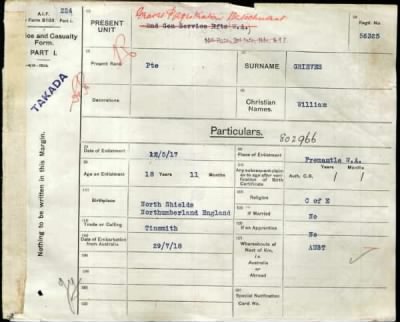 A.I.F.
Form B103
Part I.
224
PRESENT UNIT
Graves Registration Detachment
2nd Gen Service Rfts W.A.
Regtl. No.
56325
Service and Casualty Form.
PART I.
TAKADA
Present Rank
Pte
SURNAME
GRIEVES
Decorations
Christian Names.
William
Particulars.
802966
Nothing to be written in this Margin.
Date of Enlistment
12/5/17
Place of Enlistment
Fremantle W.A.
Age on Enlistment
18 Years 11 Months
Any subsequent claim as to age after verification of Birth Certificate
Years Months
Auth. C.R.
Birthplace
North Shields
Northumberland England
Religion
C of E
If Married
No
Trade or Calling
Tinsmith
If an Apprentice
No
Date of Embarkation from Australia
29/7/18
Whereabouts of Next of Kin, i.e. Australia or Abroad
AUST
Special Notification Card No.